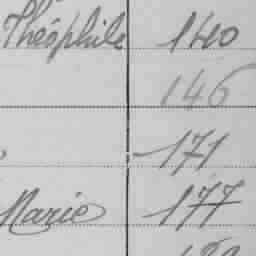 Théophile 140
146
171
Marie 177